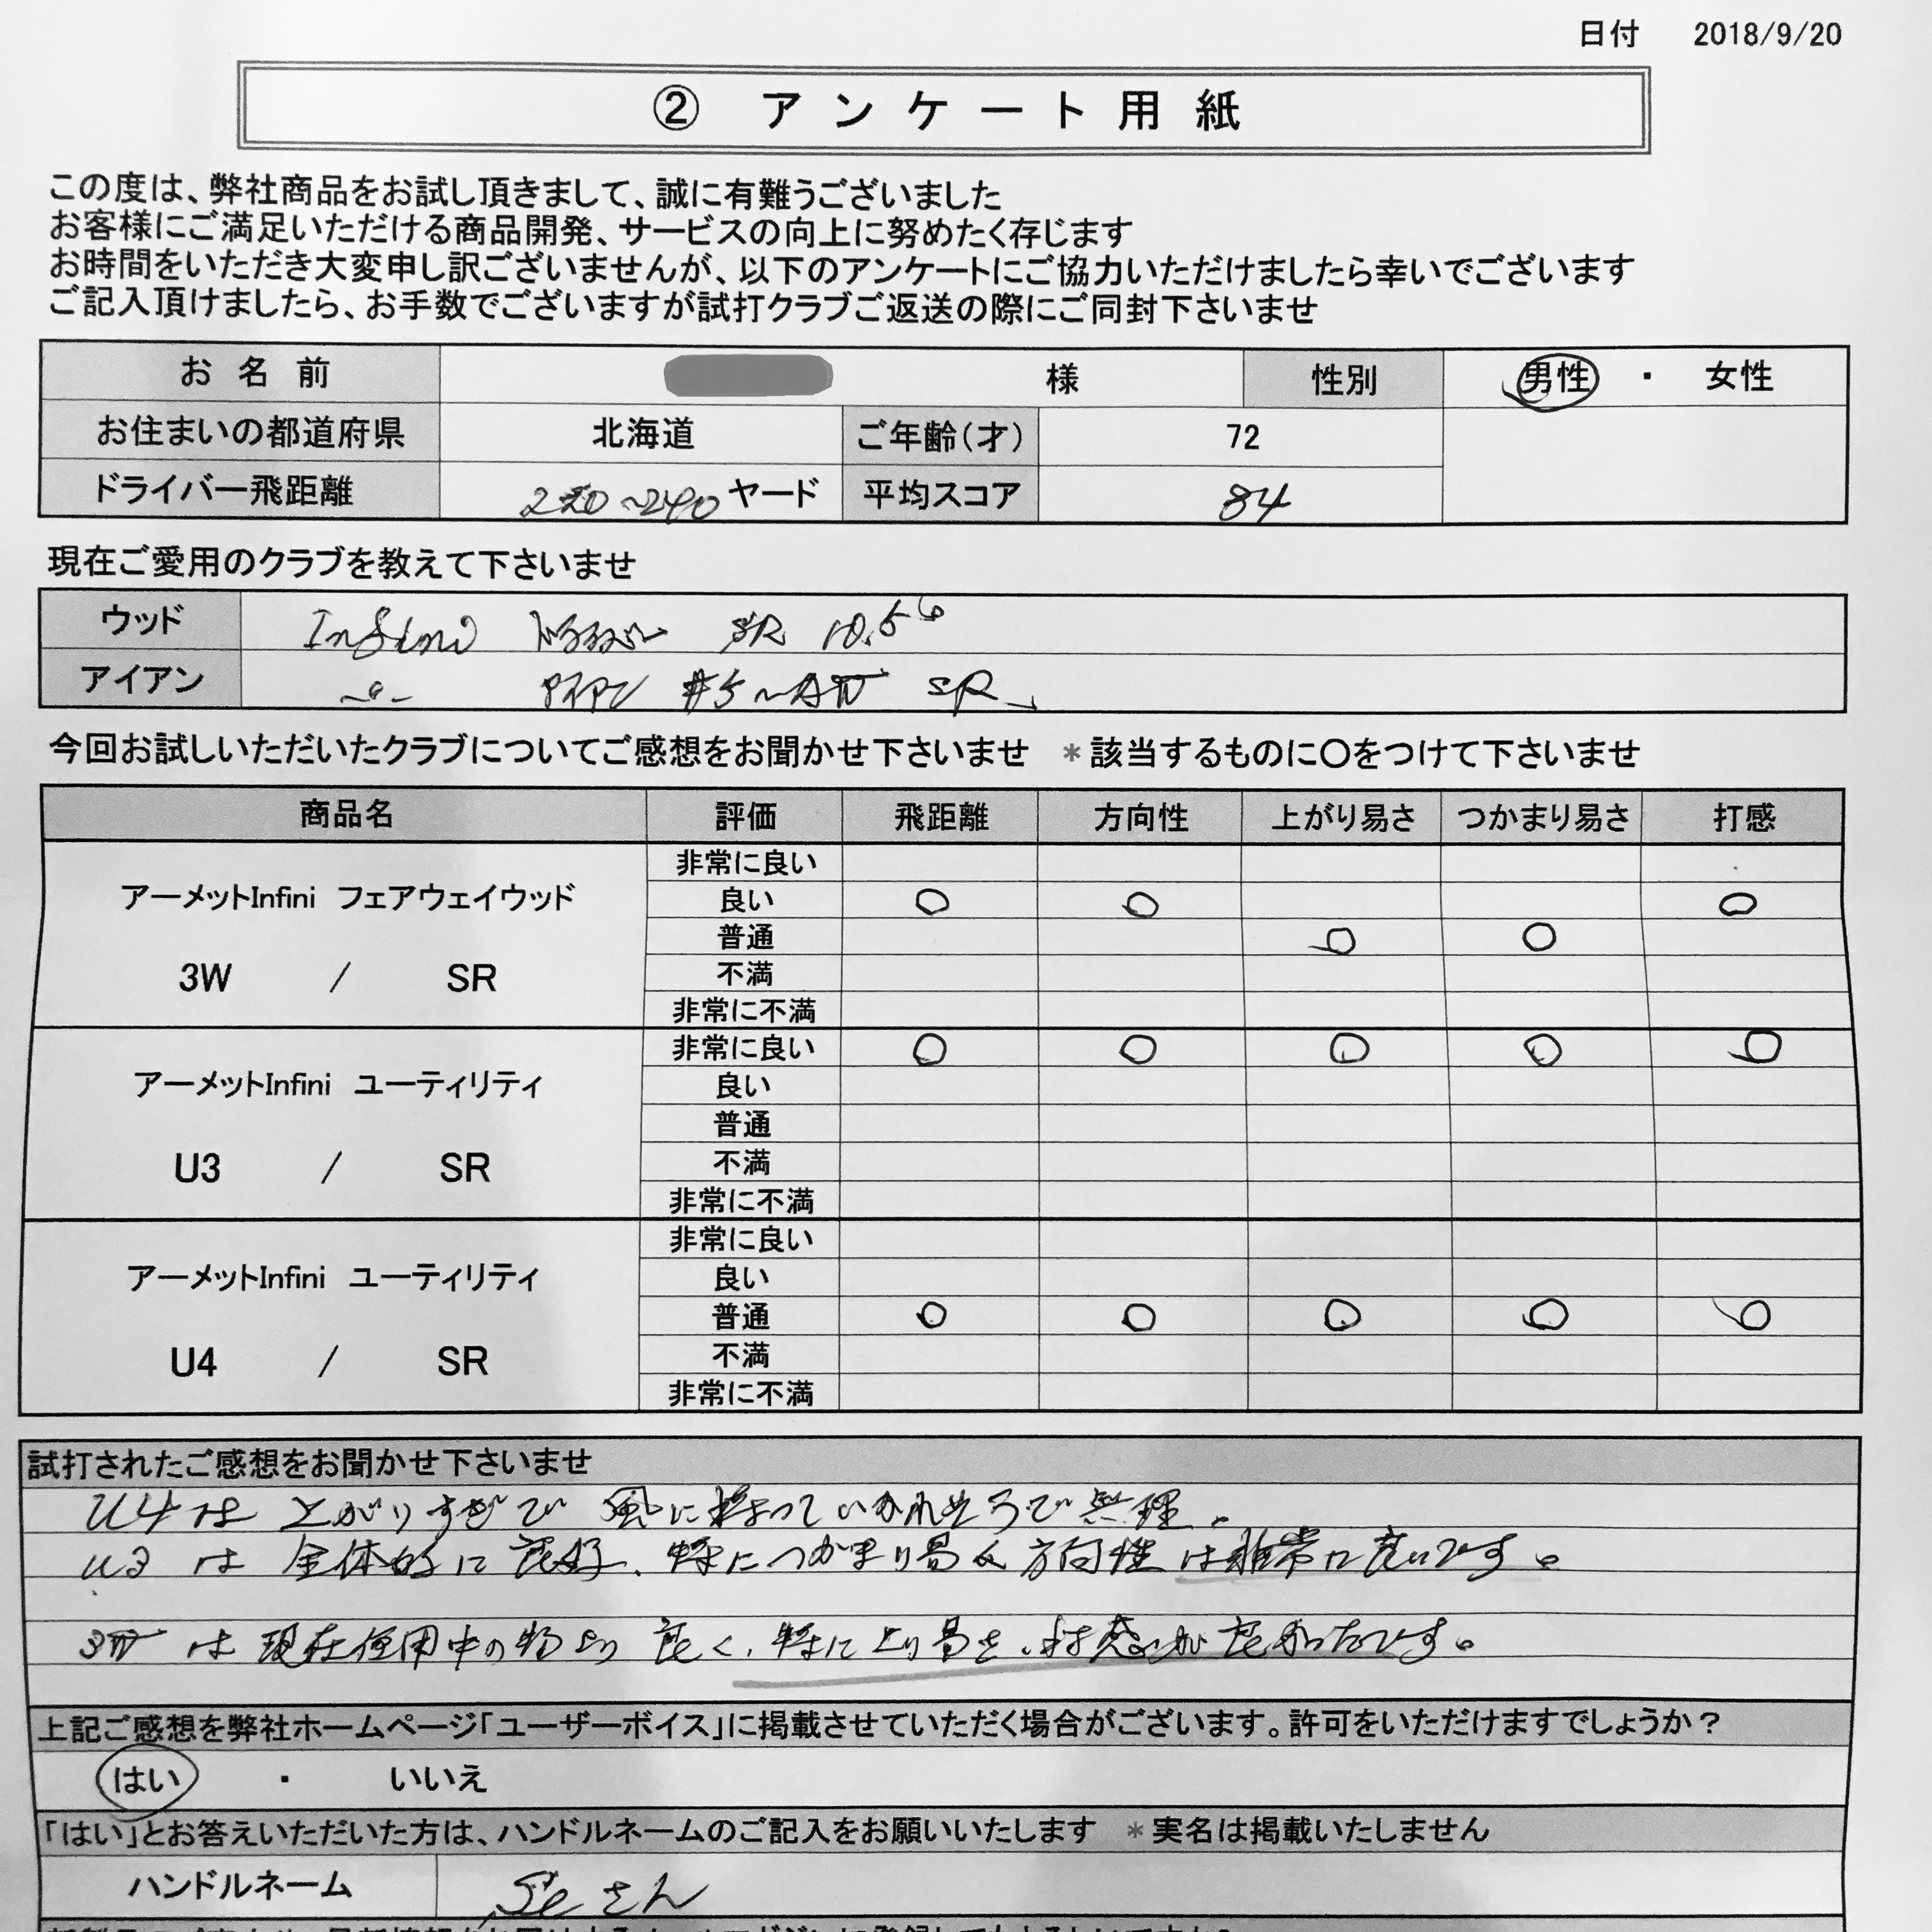 日付 2018/9/20
② アンケート用紙
この度は、弊社商品をお試し頂きまして、誠に有難うございました
お客様にご満足いただける商品開発、サービスの向上に努めたく存じます
お時間をいただき大変申し訳ございませんが、以下のアンケートにご協力いただけましたら幸いでございます
ご記入頂けましたら、お手数でございますが試打クラブご返送の際にご同封下さいませ
お名前 様 性別 男性 ・ 女性
お住まいの都道府県 北海道 ご年齢(才) 72
ドライバー飛距離 220~240 ヤード 平均スコア 84
現在ご愛用のクラブを教えて下さいませ
ウッド SR 10.5
アイアン #5~AW SR
今回お試しいただいたクラブについてご感想をお聞かせ下さいませ *該当するものに〇をつけて下さいませ
商品名 評価 飛距離 方向性 上がり易さ つかまり易さ 打感
アーメットInfini フェアウェイウッド
3W / SR
非常に良い
良い ○ ○ ○
普通 ○ ○
不満
非常に不満
アーメットInfini ユーティリティ
U3 / SR
非常に良い ○ ○ ○ ○ ○
良い
普通
不満
非常に不満
アーメットInfini ユーティリティ
U4 / SR
非常に良い
良い
普通 ○ ○ ○ ○ ○
不満
非常に不満
試打されたご感想をお聞かせ下さいませ
U4は上がりすぎで風に持っていかれそうで無理。
U3は全体的に良好、特につかまり易く方向性は非常に良いです。
3Wは現在使用中の物より良く、特に上り易さ、打感が良かったです。
上記ご感想を弊社ホームページ「ユーザーボイス」に掲載させていただく場合がございます。許可をいただけますでしょうか?
はい ・ いいえ
「はい」とお答えいただいた方は、ハンドルネームのご記入をお願いいたします *実名は掲載いたしません
ハンドルネーム さん